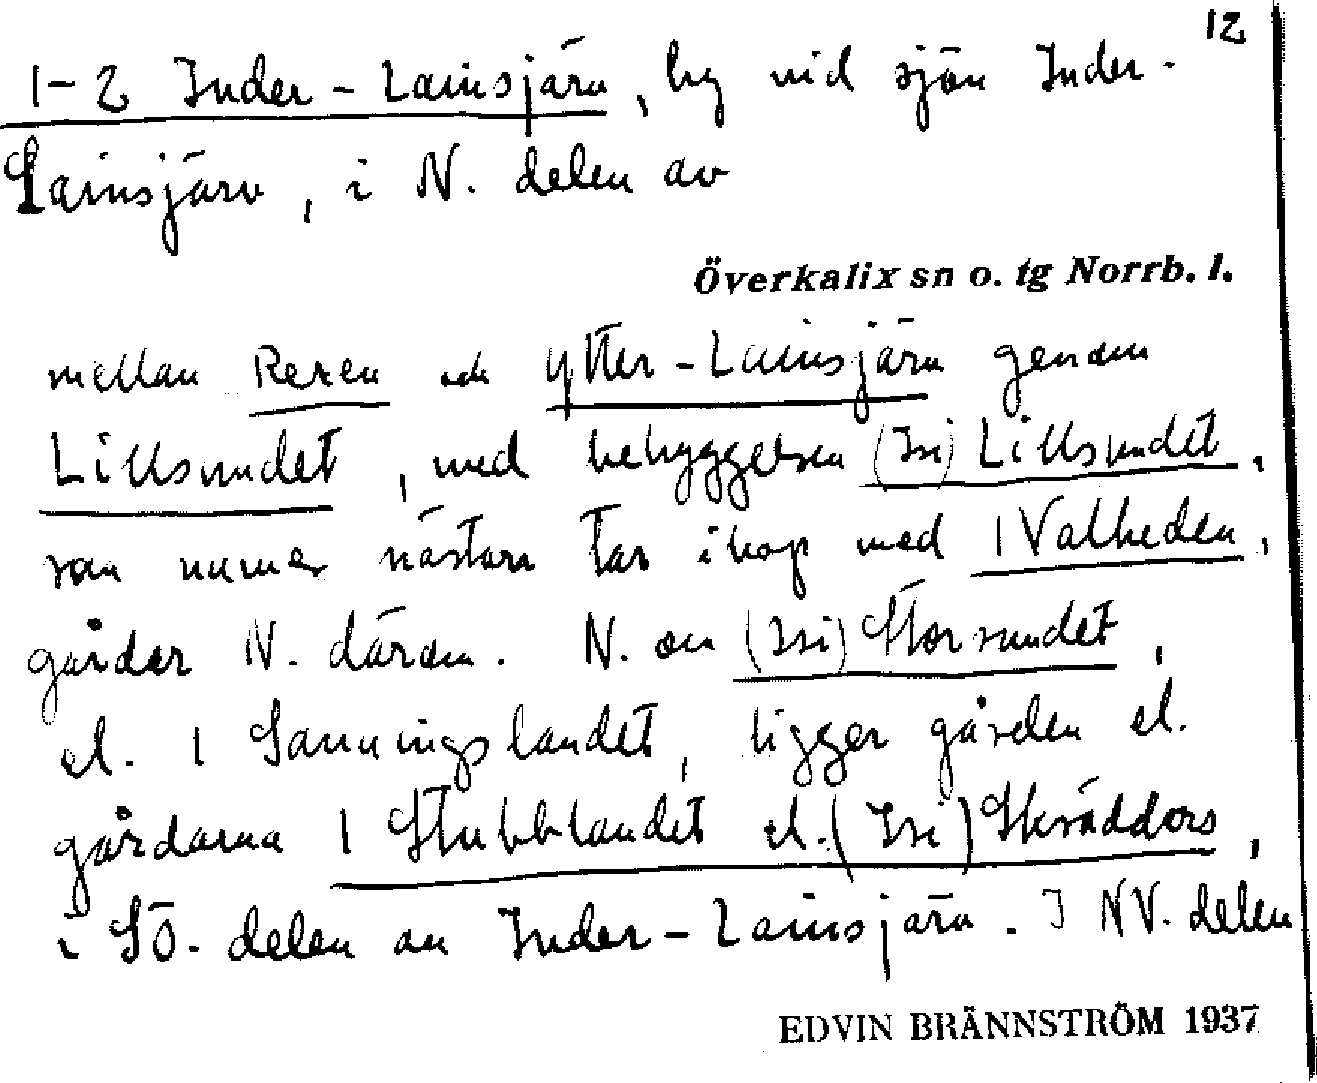 12
1-2 Inder-Lainsjärv, by vid sjön Inder-
Lainsjärv, i N. delen av
Överkalix sn o. tg Norrb. l.
mellan Rexen och Ytter-Lainsjärv genom
Lillsundet, med bebyggelsen (Isi) Lillsundet,
som numer nästan tar ihop med 1 Valheden,
gårdar N. därom. N. om (Isi) Storsundet,
el. 1 Sanningslandet, ligger gården el.
gårdarna 1 Stubblandet el. (Isi) Skräddars,
i SÖ. delen av Inder-Lainsjärv. I NV. delen
EDVIN BRÄNNSTRÖM 1937